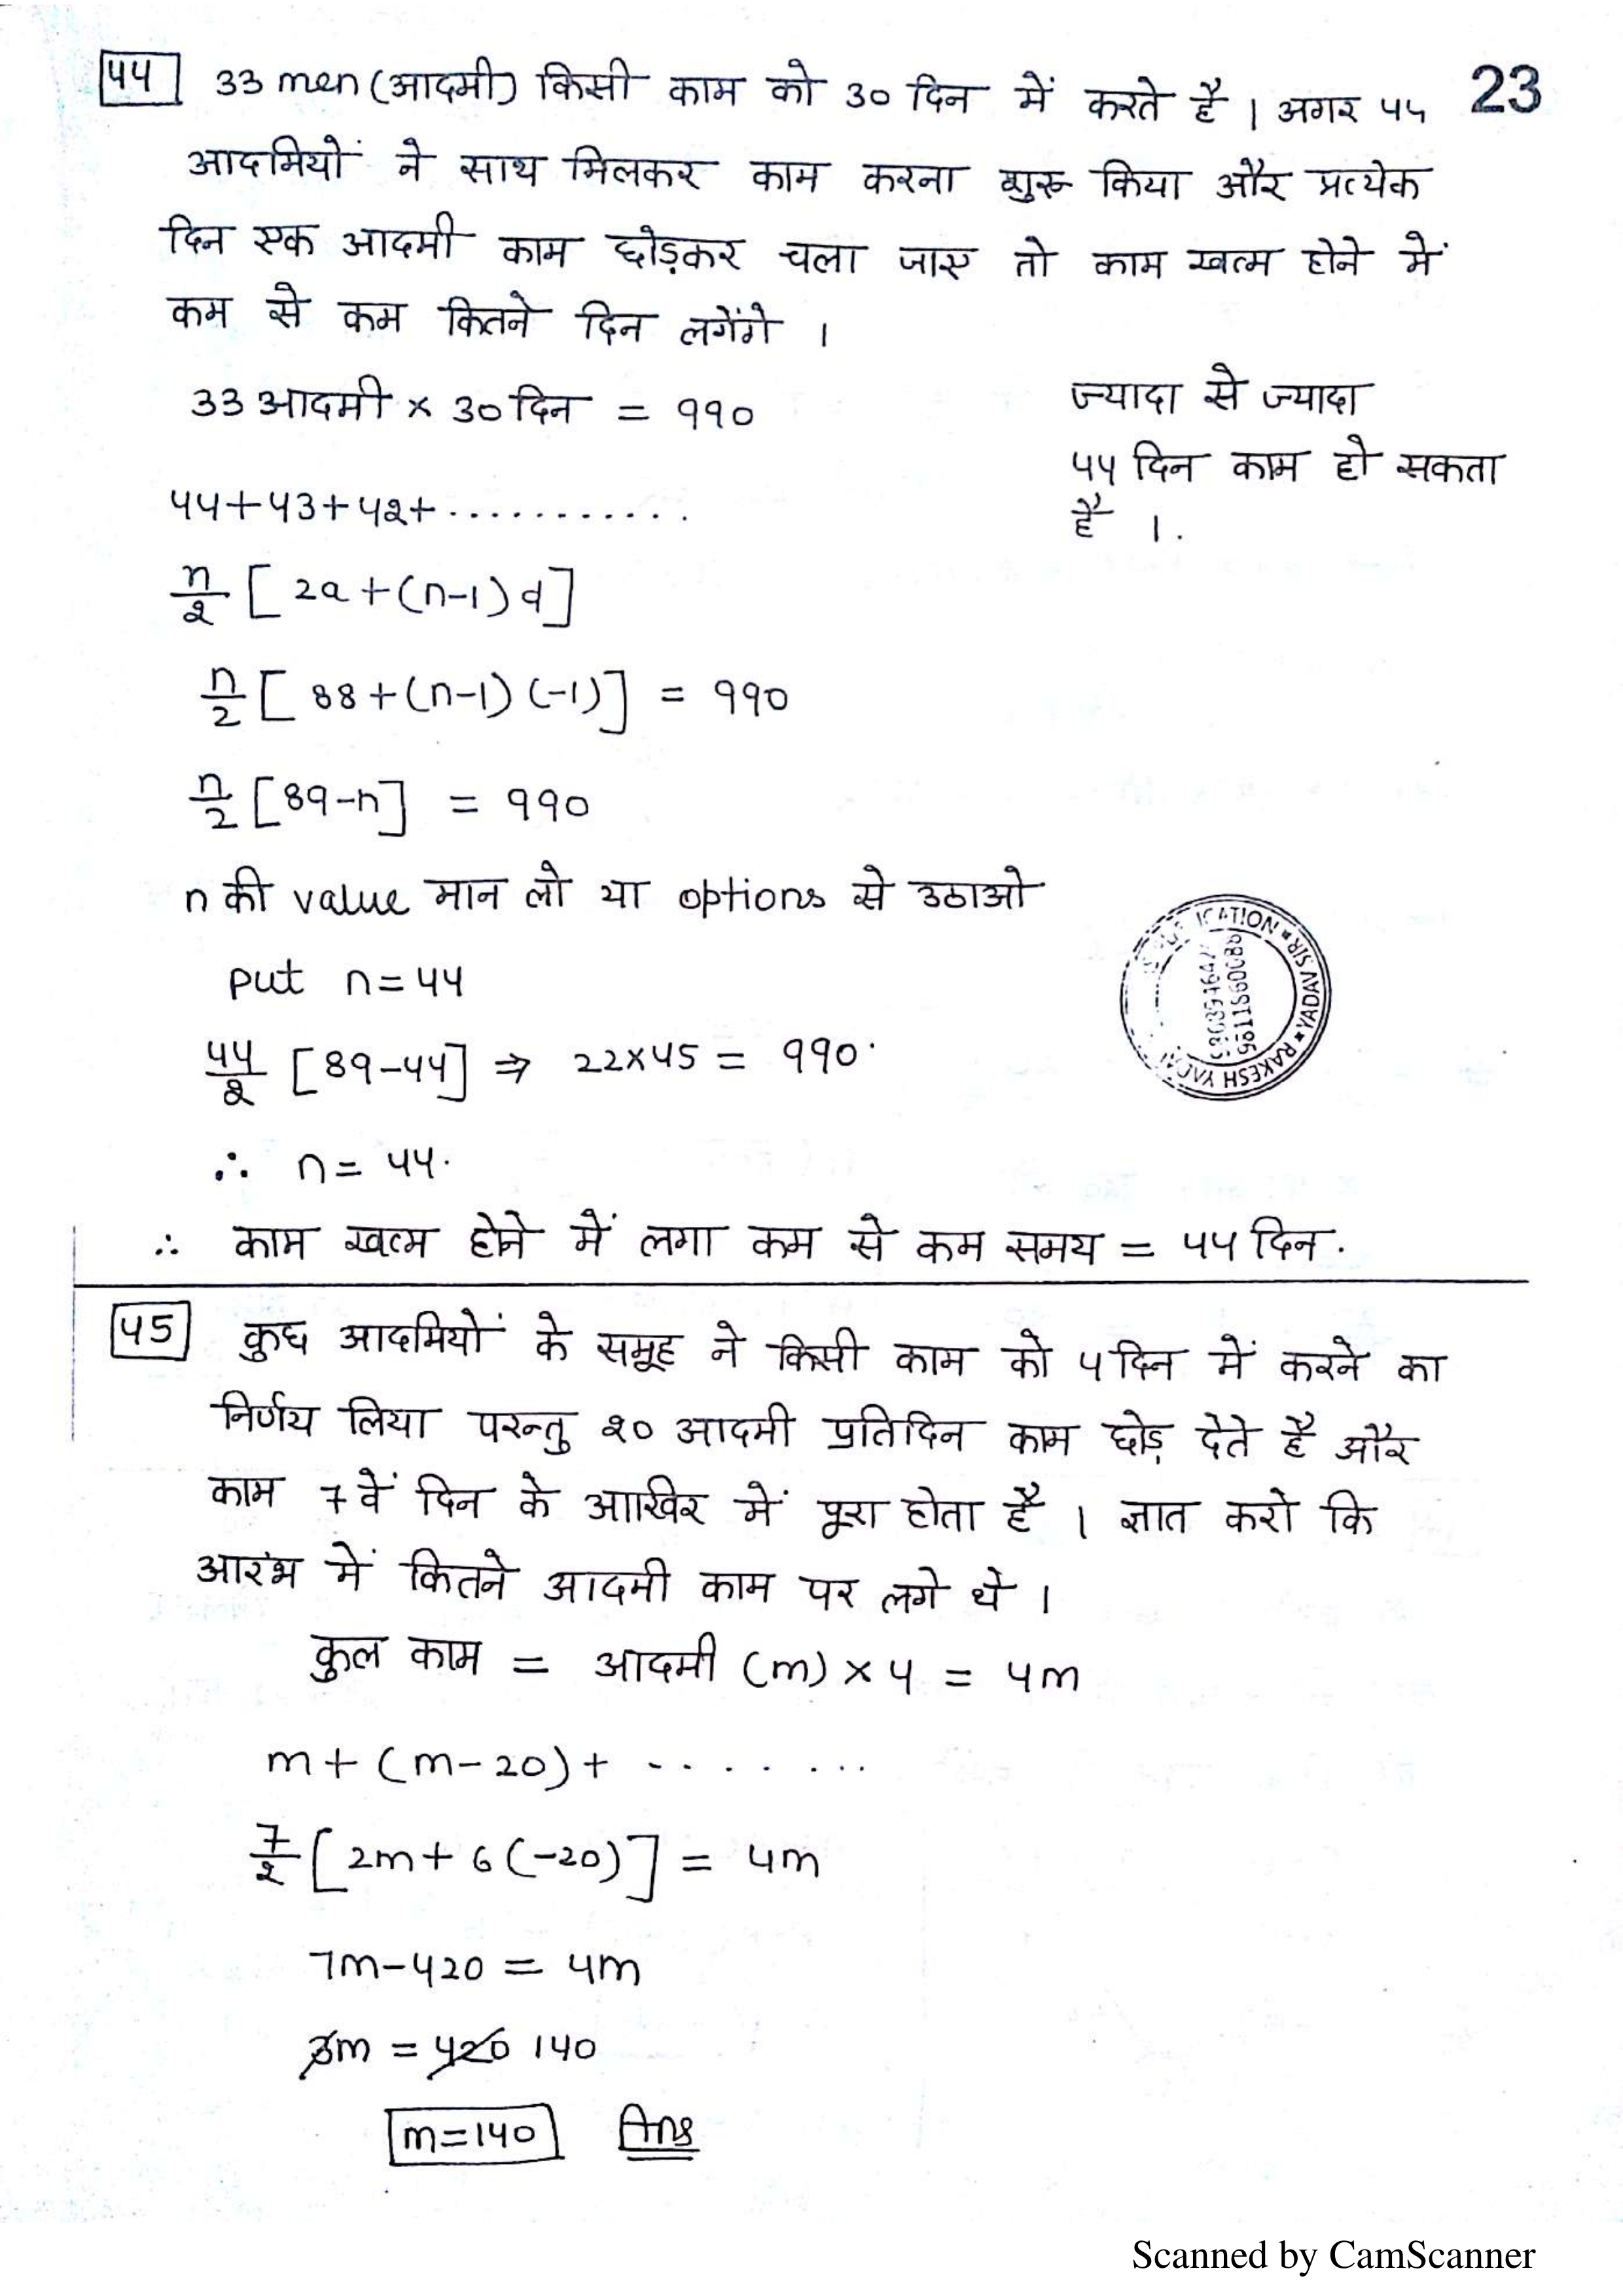 44 33 men (आदमी) किसी काम को 30 दिन में करते है । अगर 44 23
आदमियों ने साथ मिलकर काम करना शुरू किया और प्रत्येक
दिन एक आदमी काम छोड़कर चला जाए तो काम खत्म होने में
कम से कम कितने दिन लगेंगे ।
33 आदमी × 30 दिन = 990
ज्यादा से ज्यादा
44 दिन काम हो सकता
है ।.
44+43+42+ ............
n/2 [ 2a+(n-1)d]
n/2 [ 88+(n-1)(-1)] = 990
n/2 [89-n] = 990
n की value मान लो या options से उठाओ
put n=44
44/2 [89-44] ⇒ 22×45 = 990
∴ n=44.
∴ काम खत्म होने में लगा कम से कम समय = 44 दिन.
RAKESH YADAV
YADAV SIR
45 कुछ आदमियों के समूह ने किसी काम को 4 दिन में करने का
निर्णय लिया परन्तु 20 आदमी प्रतिदिन काम छोड़ देते है और
काम 7 वें दिन के आखिर में पूरा होता है । ज्ञात करो कि
आरंभ में कितने आदमी काम पर लगे थे ।
कुल काम = आदमी (m) × 4 = 4m
m+(m-20)+ ........
7/2 [2m+6(-20)] = 4m
7m-420 = 4m
3m = 420 140
m=140 Ans
Scanned by CamScanner